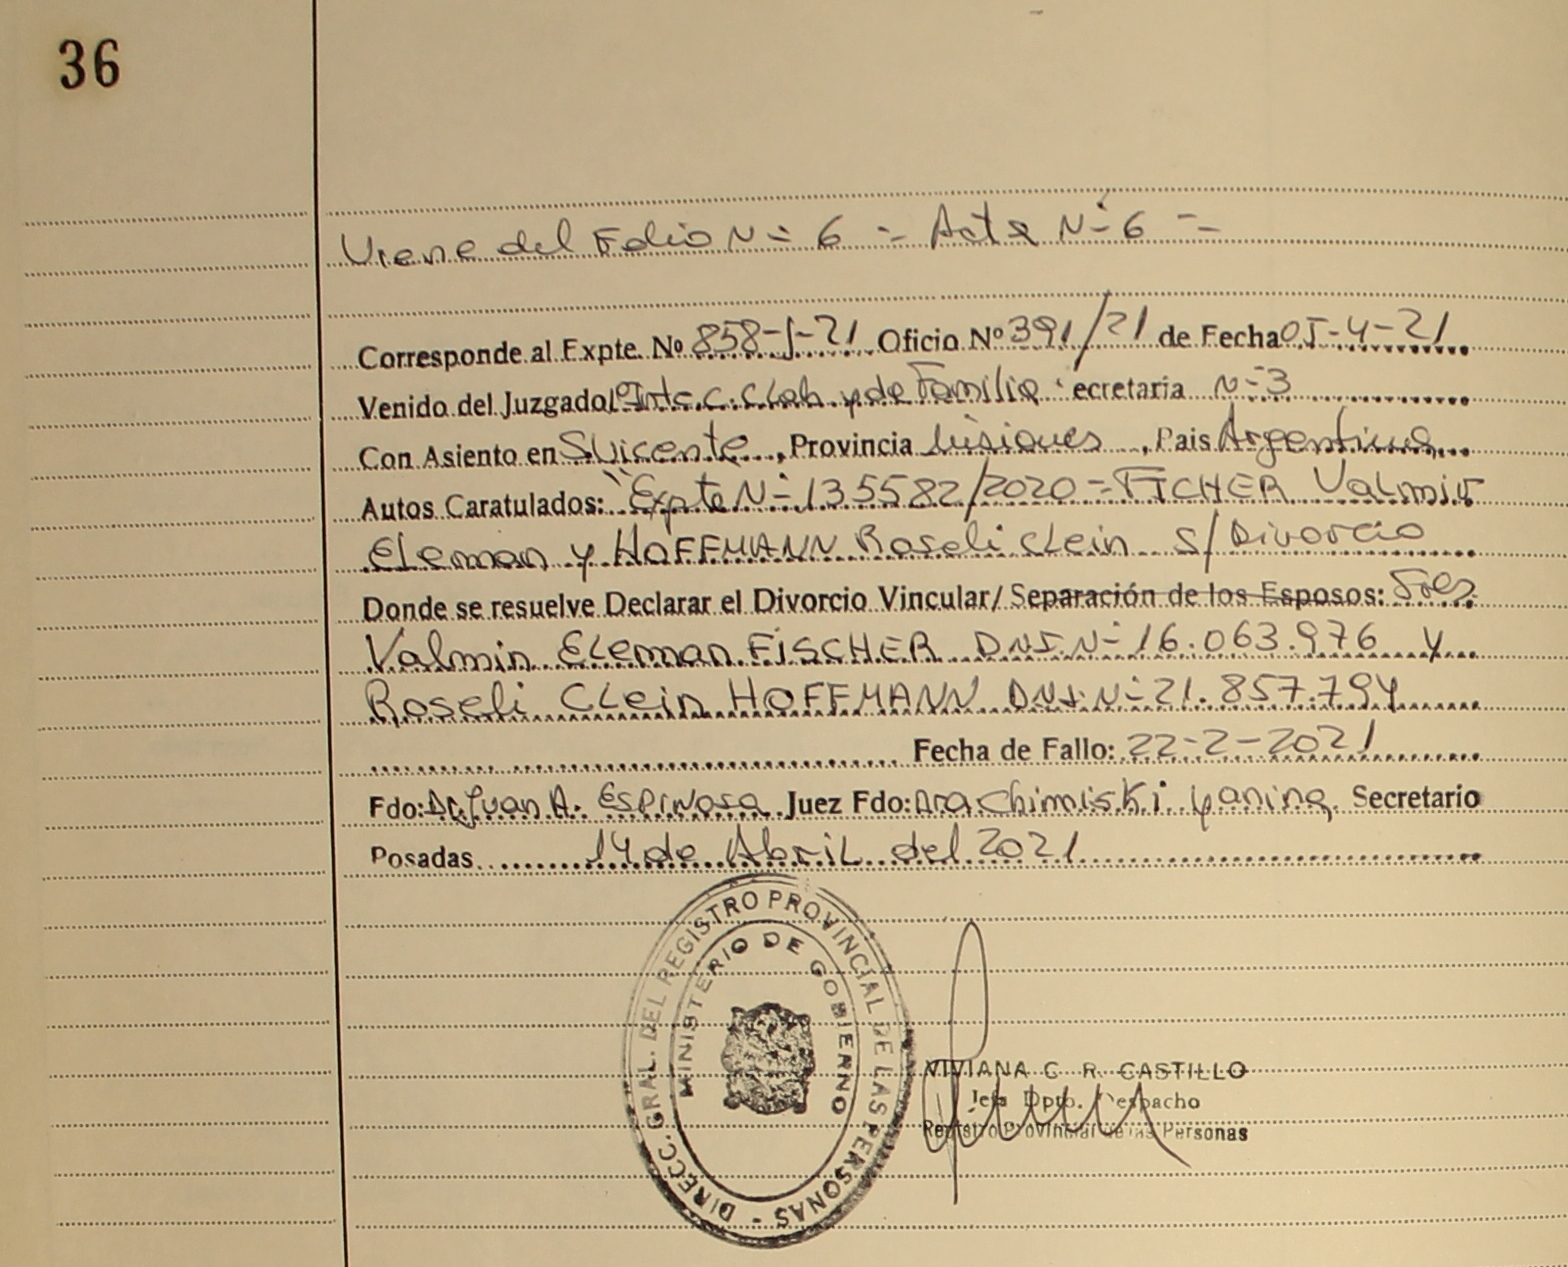 36
Viene del Folio N= 6 =- Acta N=6 =-
Corresponde al Expte. Nº 858-J-21 Oficio Nº 391/21 de Fecha 05-4-21
Venido del Juzgado C. y de Familia ecretaria N=3
Con Asiento en S Vicente, Provincia Misiones, Pais Argentina
Autos Caratulados: "Expte N=135582/2020=FICHER Valmir
Eleman y HOFFMANN Roseli Clein s/Divorcio
Donde se resuelve Declarar el Divorcio Vincular/ Separación de los Esposos:
Valmin Eleman FiSCHER DNI.N=16.063.976 y
Roseli Clein HOFFMANN DNI.N=21.857.794
Fecha de Fallo: 22-2-2021
Fdo: Dr. Juan A. Espinosa Juez Fdo: Dra Chimiski yanina Secretario
Posadas 14 de Abril del 2021
DIRECC. GRAL. DEL REGISTRO PROVINCIAL DE LAS PERSONAS -
MINISTERIO DE GOBIERNO
VIVIANA C. R. CASTILLO
Jefa Dpto. Despacho
Registro Provincial de las Personas